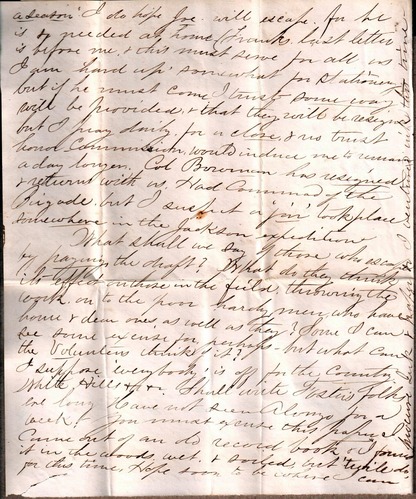 a season" I do hope Joe. will escape. for he
is so needed at home, Frank's last letter
is before me, & this must serve for all as
I am hard up somewhat for stationery
but if he must come I trust some way
will be provided, & that they will be resigned
but I pray daily for a close, & no trust
honor Commission, would induce me to remain
a day longer. Col Bowman has resigned
& returns with us, Had Command of the
Brigade, but I suspect a "jar" took place
somewhere in the Jackson expedition
What shall we say of those who escape
by paying the draft? What do they think
its effect on those in the field, throwing the
work on to the poor hardy men, who have
home & dear ones, as well as they? Some I can
see some excuse for perhaps, but what can
the Volunteers think of it?
I suppose everybody is off for the Country
White Hills &c. Shall write Foster's folks
ere long Have not seen Alonzo for a
week! You must excuse this paper. I
Came out of an old record book I found
it in the woods, wet & soiled, but "twill do
for this time, Hope soon to be where I can